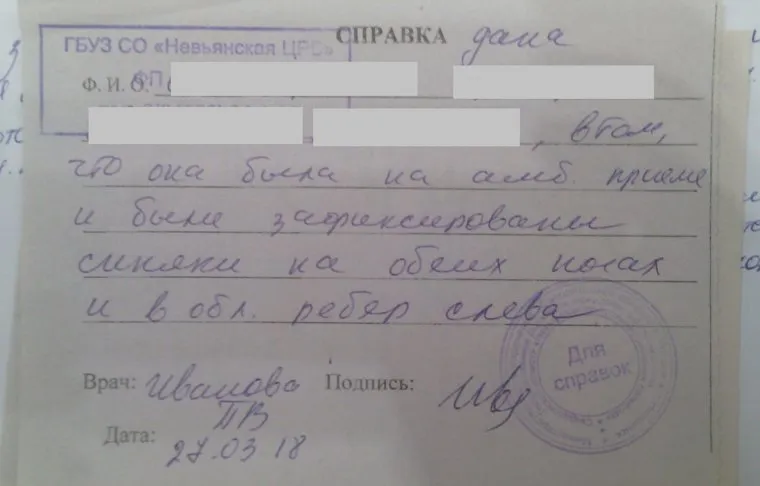 ГБУЗ СО «Невьянская ЦРБ»
СПРАВКА дана
Ф. И. О.
ФП
, в том,
что она была на амб. приеме
и были зафиксированы
синяки на обеих ногах
и в обл. ребер слева
Врач: Иванова Подпись:
ПВ
Дата: 27.03 18
Для
справок